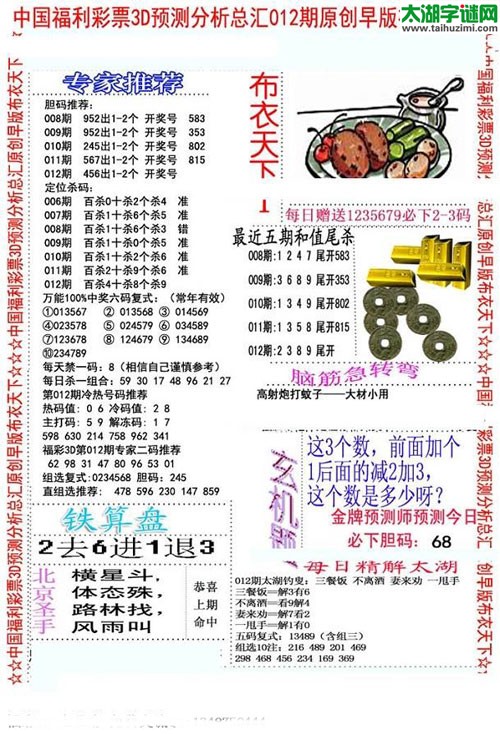 太湖字谜网
www.taihuzimi.com
中国福利彩票3D预测分析总汇012期原创早版
☆☆中国福利彩票3D预测分析总汇原创早版布衣天下☆☆☆中国福利彩票3D预测分析总汇原创早版布衣天下
专家推荐
胆码推荐:
008期 952出1-2个 开奖号 583
009期 952出1-2个 开奖号 353
010期 245出1-2个 开奖号 802
011期 567出1-2个 开奖号 815
012期 456出1-2个 开奖号
定位杀码:
006期 百杀0十杀2个杀4 准
007期 百杀1十杀6个杀5 准
008期 百杀1十杀6个杀3 错
009期 百杀1十杀0个杀0 准
010期 百杀1十杀1个杀6 准
011期 百杀2十杀9个杀6 准
012期 百杀4十杀8个杀9
万能100%中奖六码复式: (常年有效)
①013567 ② 013568 ③ 014569
④023578 ⑤ 024579 ⑥ 034589
⑦123678 ⑧ 124679 ⑨ 134689
⑩234789
每天禁一码: 8 (相信自己谨慎参考)
每日杀一组合: 59 30 17 48 96 21 27
第012期冷热号码推荐
热码值: 0 6 冷码值: 2 8
主打码: 5 9 解冻码: 1 7
598 630 214 758 962 341
福彩3D第012期专家二码推荐
62 98 31 47 80 96 53 01
组选复式: 0234568 胆码: 245
直组选推荐: 478 596 230 147 859
铁算盘
2去6进1退3
北京圣手
横星斗,
体态殊,
路林找,
风雨叫
恭喜
上期
命中
布衣天下
每日赠送1235679必下2-3码
最近五期和值尾杀
008期:1 2 4 7 尾开583
009期:3 6 8 9 尾开353
010期:1 3 4 9 尾开802
011期:1 3 5 8 尾开815
012期:2 3 8 9 尾开
脑筋急转弯
高射炮打蚊子——大材小用
玄机题
这3个数，前面加个
1后面的减2加3，
这个数是多少呀?
金牌预测师预测今日
必下胆码: 68
每日精解太湖
012期太湖钓叟: 三餐饭 不离酒 妻来劝 一甩手
三餐饭═解3有6
不离酒═看9解4
妻来劝═解7看2
一甩手═解1有0
五码复式: 13489 (含组三)
组选10注: 216 489 201 469
298 468 456 234 169 369